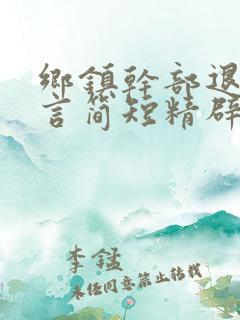 鄉鎮幹部退
言简短精辟
李錳
未经同意禁止转载